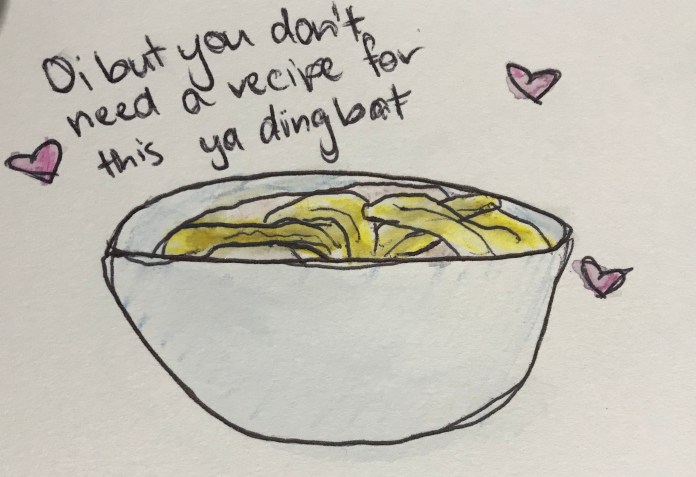 Oi but you don't
need a recipe for
this ya dingbat